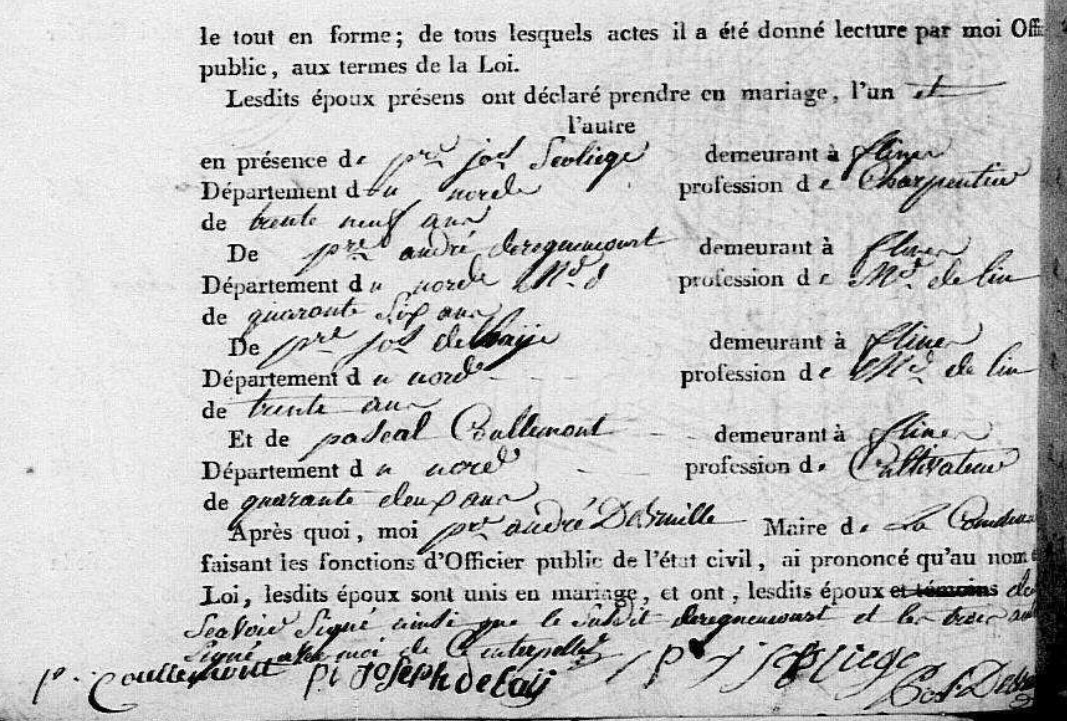 le tout en forme; de tous lesquels actes il a été donné lecture par moi Offi
public, aux termes de la Loi.
Lesdits époux présens ont déclaré prendre en mariage, l'un et
l'autre
en présence de pre jos Scoliege demeurant à flines
Département du nord profession de Charpentier
de trente neuf ans
De pre andré deregneucourt demeurant à flines
Département du nord profession de Md. de lin
de quarante Six ans
De pre jos delhaije demeurant à flines
Département du nord profession de Md. de lin
de trente ans
Et de pascal Coullemont demeurant à flines
Département du nord profession de Cultivateur
de quarante deux ans
Après quoi, moi pre andré Desmille Maire de La Commu
faisant les fonctions d'Officier public de l'état civil, ai prononcé qu'au nom
Loi, lesdits époux sont unis en mariage, et ont, lesdits époux et témoins de
Scavoir Signé ainsi que le Susdit deregneucourt et les trois au
Signé avec moi de Ce interpellés
p. Coullemont pi joseph delaij p j Scoliege